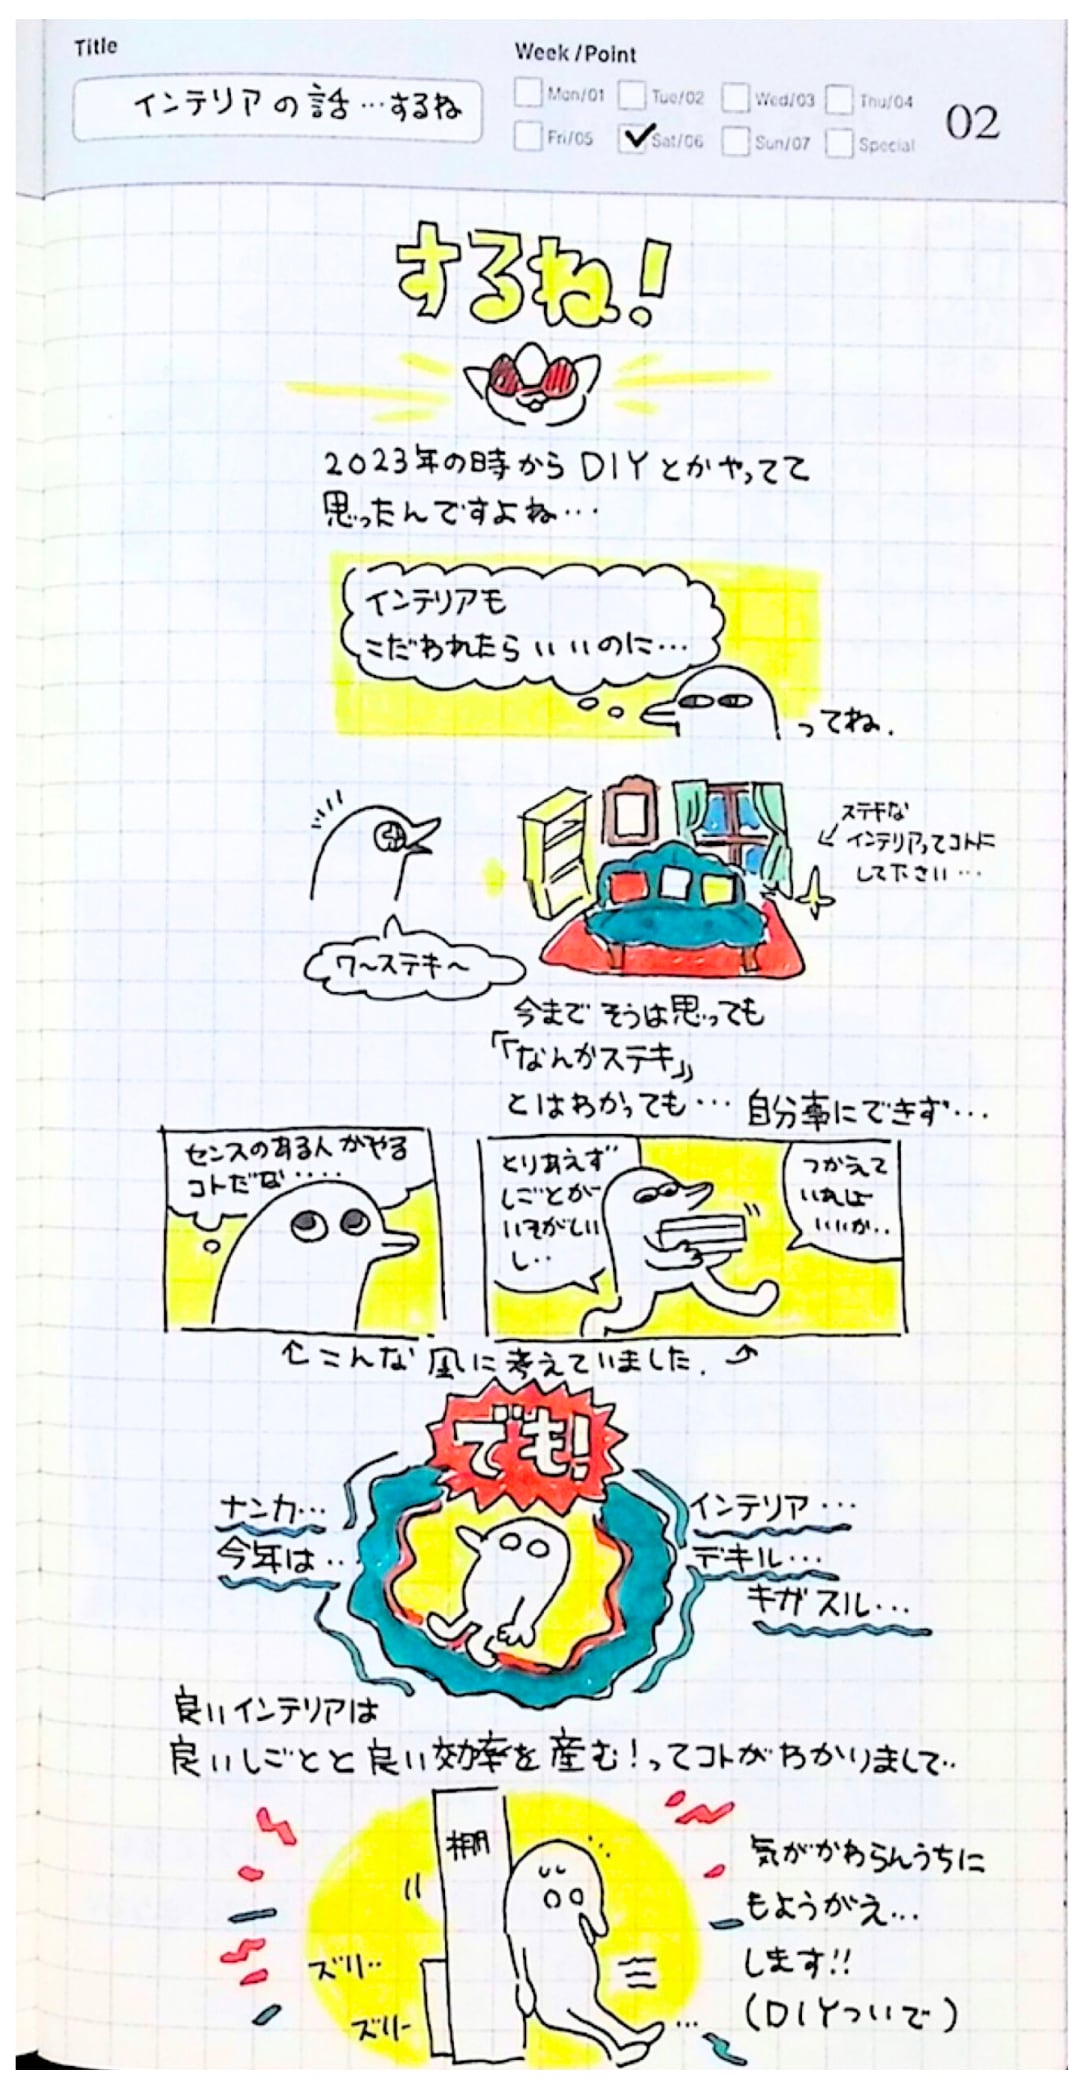 Title
インテリアの話…するね
Week/Point
Mon/01 Tue/02 Wed/03 Thu/04
Fri/05 Sat/06 Sun/07 Special
02
するね!
2023年の時からDIYとかやってて
思ったんですよね…
インテリアも
こだわれたらいいのに…
ってね.
ステキな
インテリアってコトに
して下さい…
ワ～ステキ～
今までそうは思っても
「「なんかステキ」」
とはわかっても…自分事にできず…
センスのある人がやる
コトだな……
とりあえず
しごとが
いそがしい
し..
つかえて
いれば
いいか..
↑こんな風に考えていました.↗
でも!
ナンカ…
今年は…
インテリア…
デキル…
キガスル…
良いインテリアは
良いしごとと良い効率を産む!ってコトがわかりまして..
棚
ズリ..
ズリー
気がかわらんうちに
もようがえ…
します!!
(DIYついで)